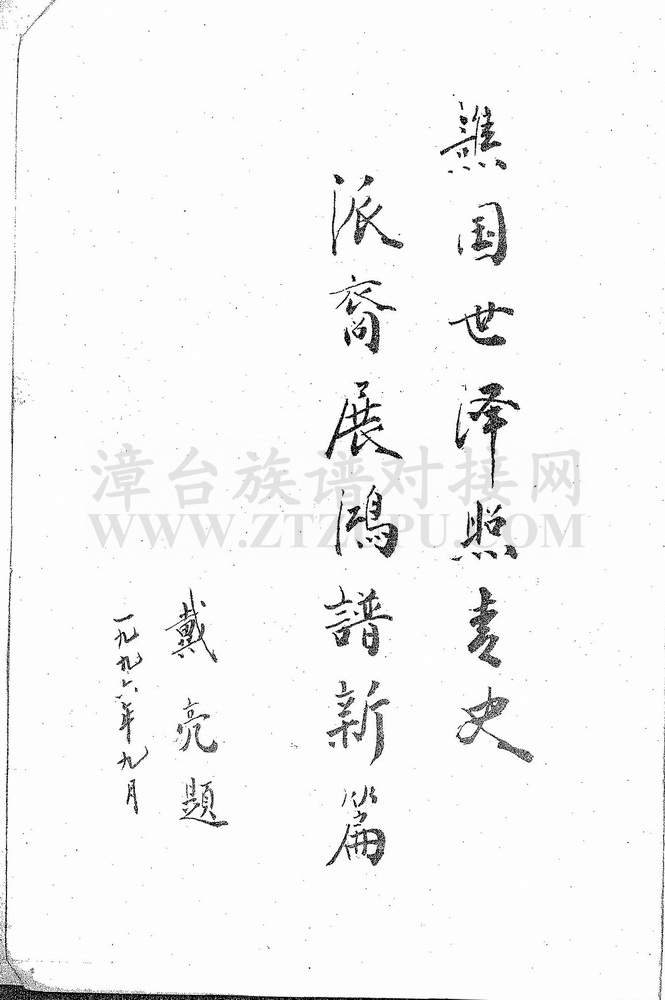 谯国世泽照青史
派裔展鸿譜新篇
戴亮題
一九九六年九月
漳台族谱对接网
WWW.ZTZUPU.COM